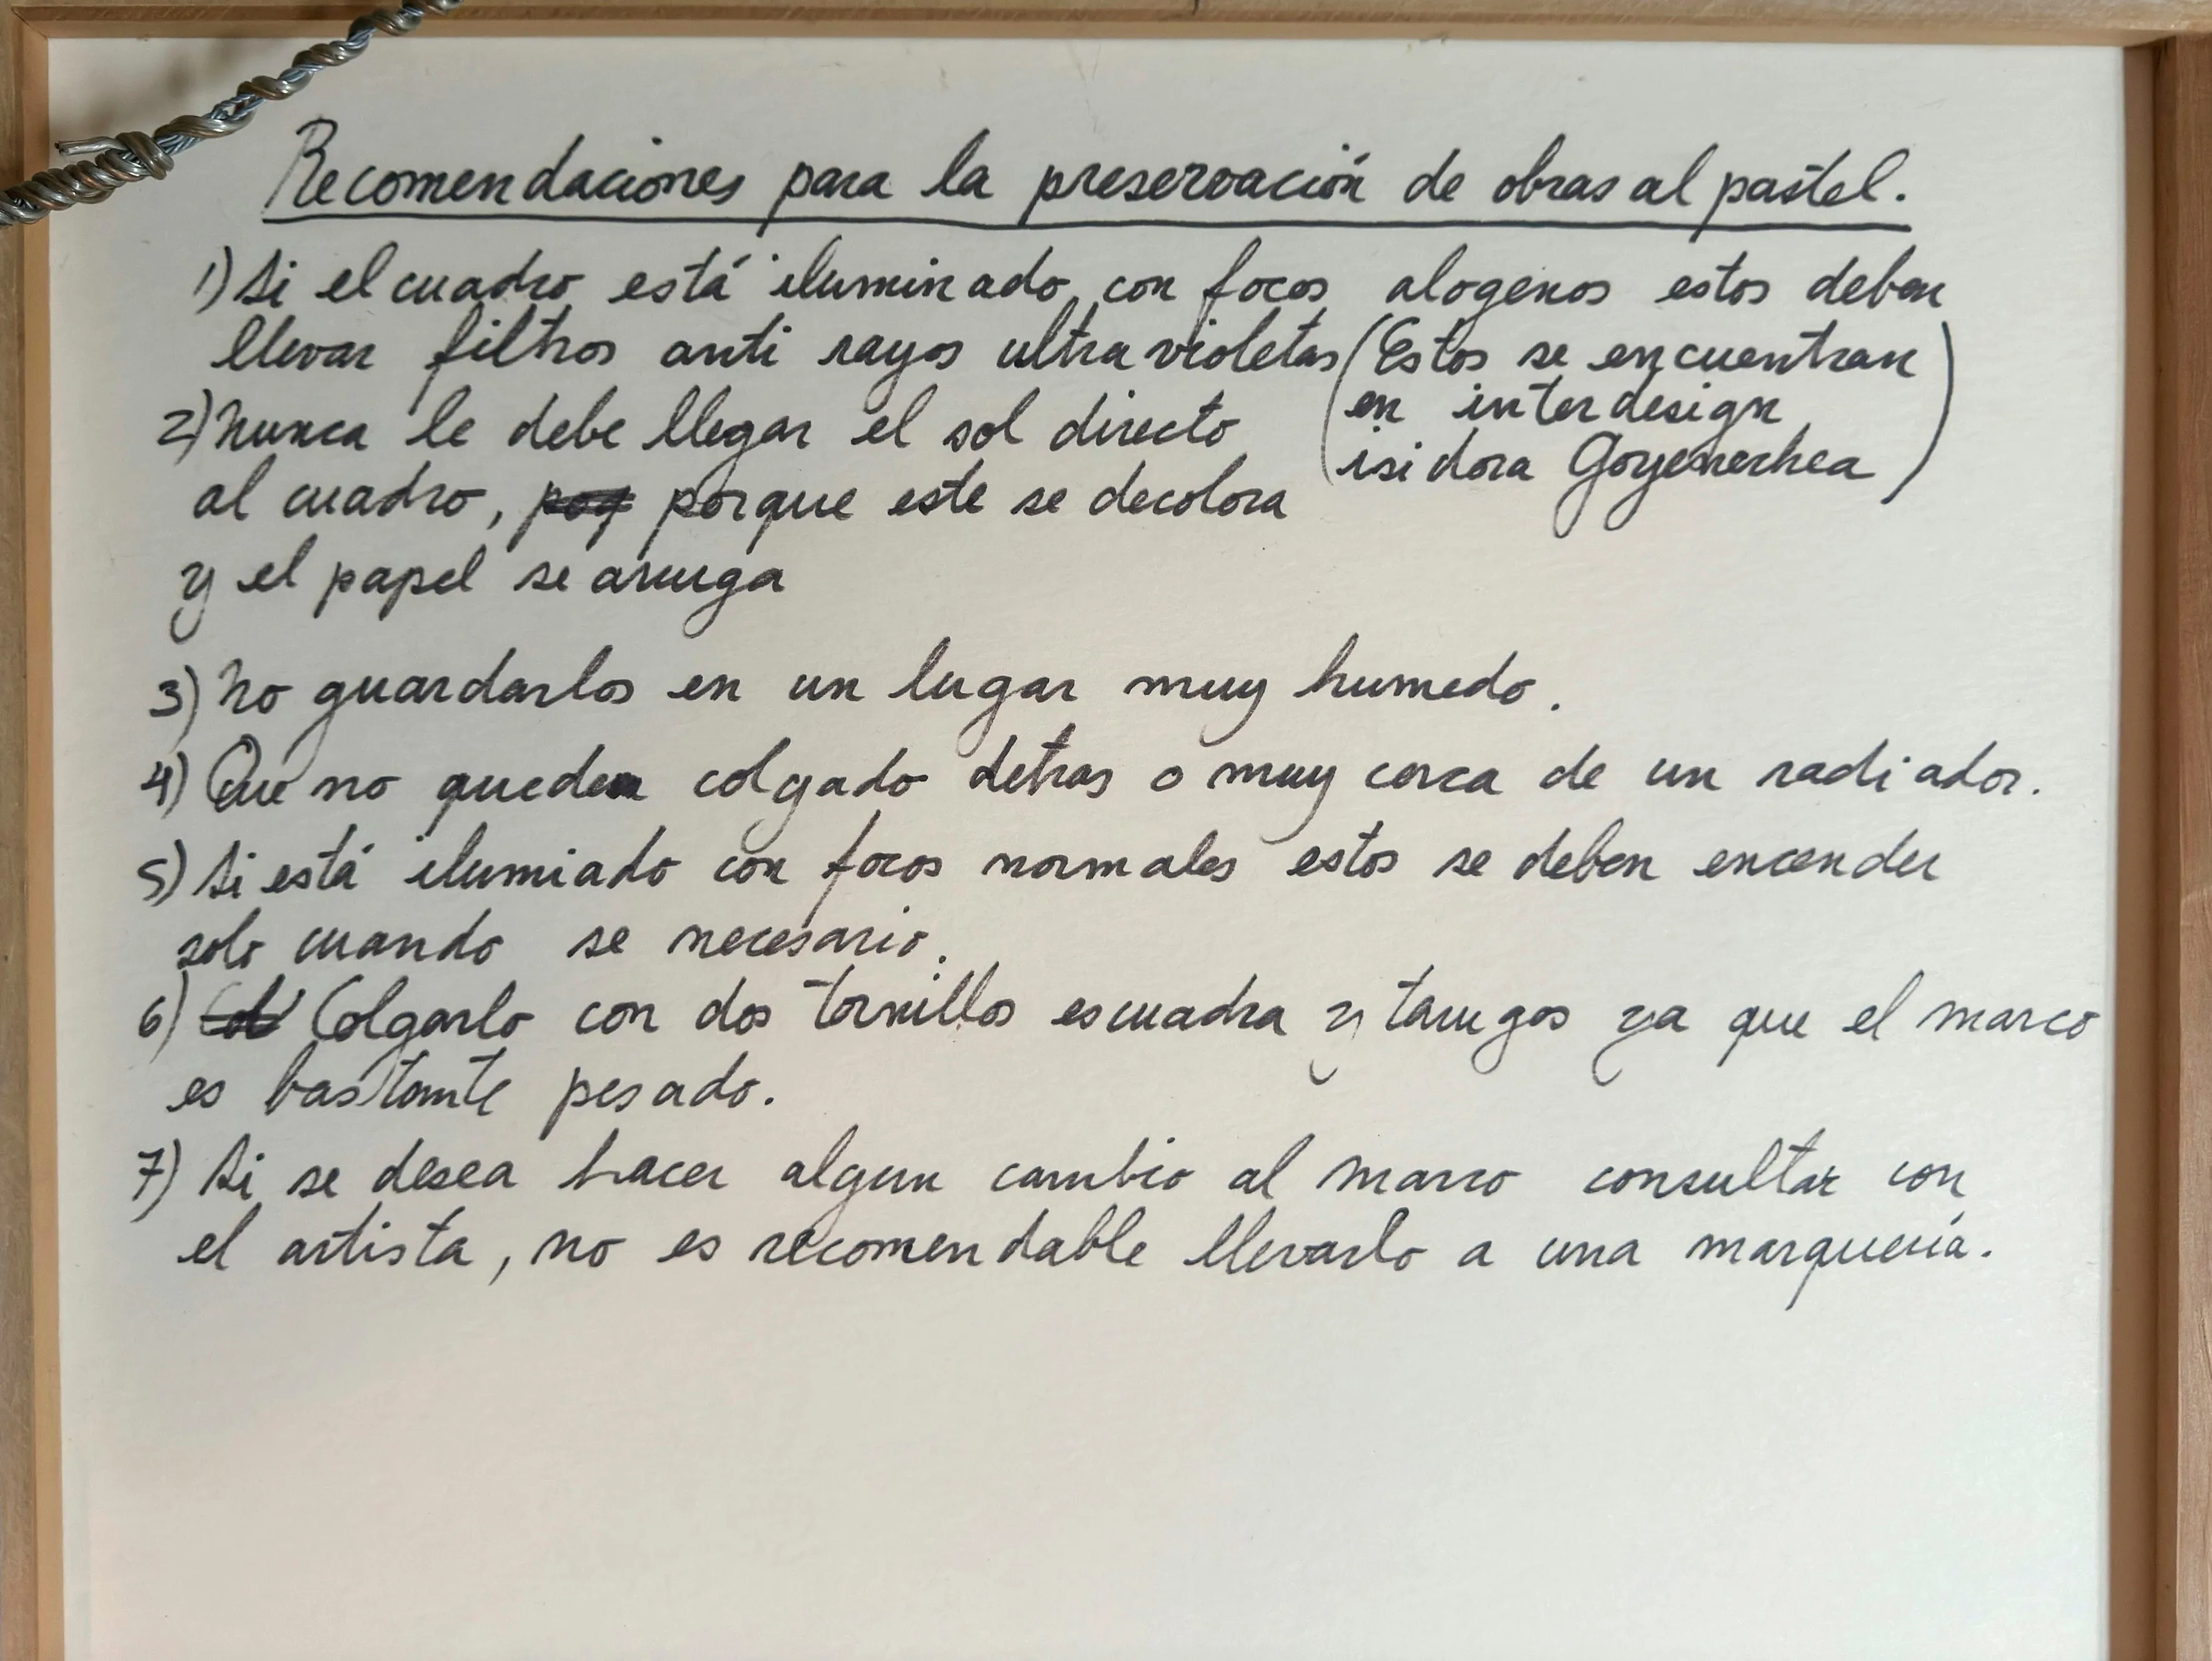 Recomendaciones para la preservación de obras al pastel.
1) Si el cuadro está iluminado con focos alogenos estos deben
llevar filtros anti rayos ultra violetas (Estos se encuentran
en interdesign
isidora Goyenechea)
2) Nunca le debe llegar el sol directo
al cuadro, porque este se decolora
y el papel se arruga
3) No guardarlos en un lugar muy humedo.
4) Que no quede colgado detras o muy cerca de un radiador.
5) Si está ilumiado con focos normales estos se deben encender
solo cuando se necesario.
6) Colgarlo con dos tornillos escuadra y tarugos ya que el marco
es bastante pesado.
7) Si se desea hacer algun cambio al marco consultar con
el artista, no es recomendable llevarlo a una marquería.